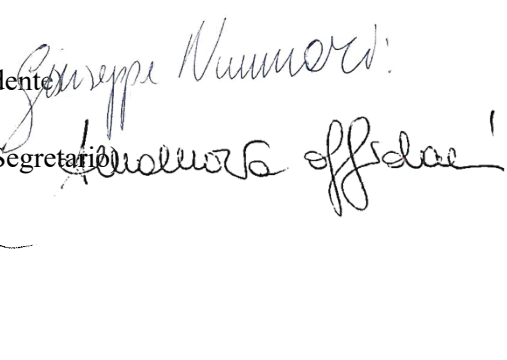 dente Giuseppe Nummari
Segretario Annamaria Offidani